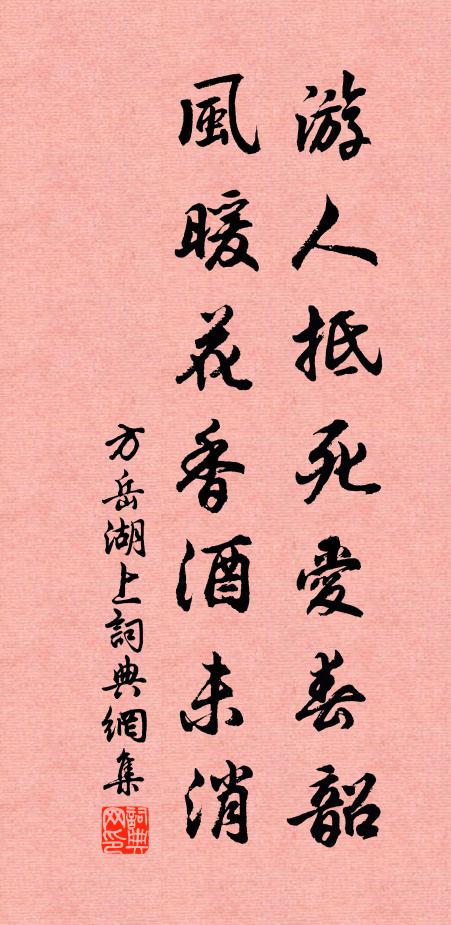 游人抵死愛春韶
風暖花香酒未消
方岳湖上詞典網集
詞典网印